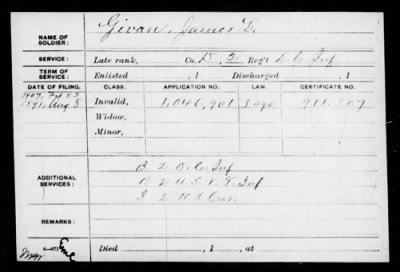 NAME OF SOLDIER: Givan, James D.
SERVICE: Late rank, Co. D, 2 Reg't D. C. Inf
TERM OF SERVICE: Enlisted , 1 Discharged , 1
DATE OF FILING. CLASS. APPLICATION NO. LAW. CERTIFICATE NO.
1891, Aug. 8 Invalid, 1,046,901
Widow,
Minor,
ADDITIONAL SERVICES: B 2 D. C. Inf
B 2 U. S. V. V. Inf
I 2 U. S. Cav.
REMARKS:
Died , 1 , at